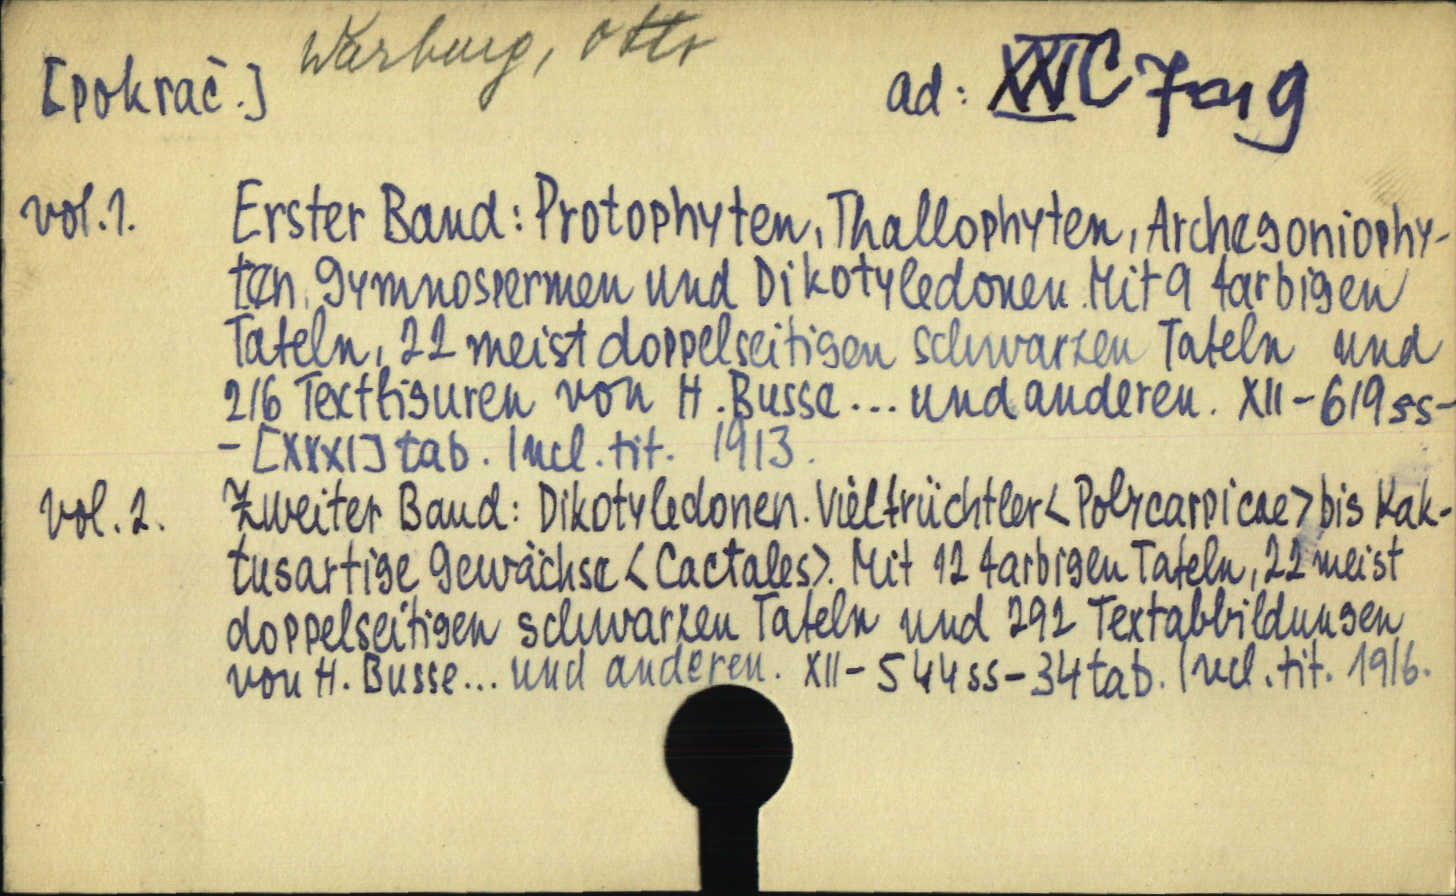 Warburg, Otto
[pokrač.] ad: XXVI C
vol. 1. Erster Band: Protophyten, Thallophyten, Archegoniophy-
ten, Gymnospermen und Dikotyledonen. Mit 9 farbigen
Tafeln, 22 meist doppelseitigen schwarzen Tafeln und
216 Textfiguren von H. Busse... und anderen. XII-619 ss-
-[XXXI] tab. Incl. tit. 1913.
vol. 2. Zweiter Band: Dikotyledonen. Vielfrüchtler <Polycarpicae> bis Kak-
tusartige Gewächse <Cactales>. Mit 12 farbigen Tafeln, 22 meist
doppelseitigen schwarzen Tafeln und 292 Textabbildungen
von H. Busse... und anderen. XII-544 ss-34 tab. Incl. tit. 1916.